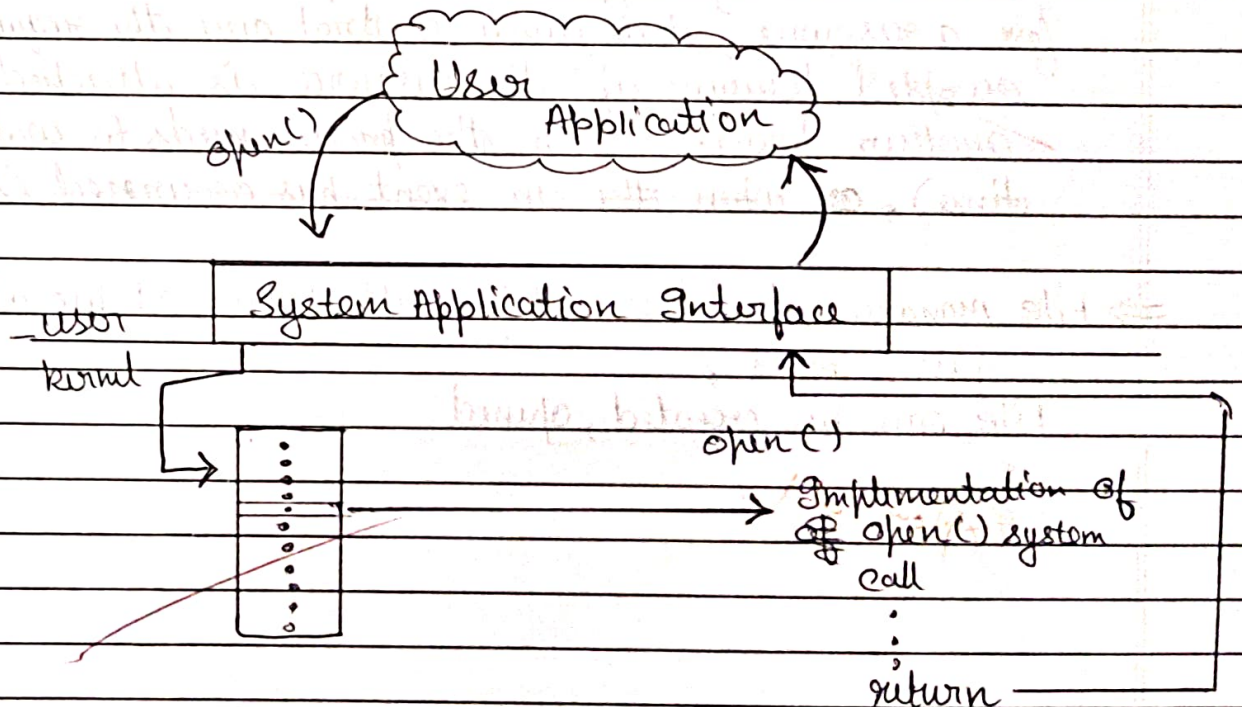 User
Application
open()
System Application Interface
user
kernel
open()
Implimentation of
open() system
call
return